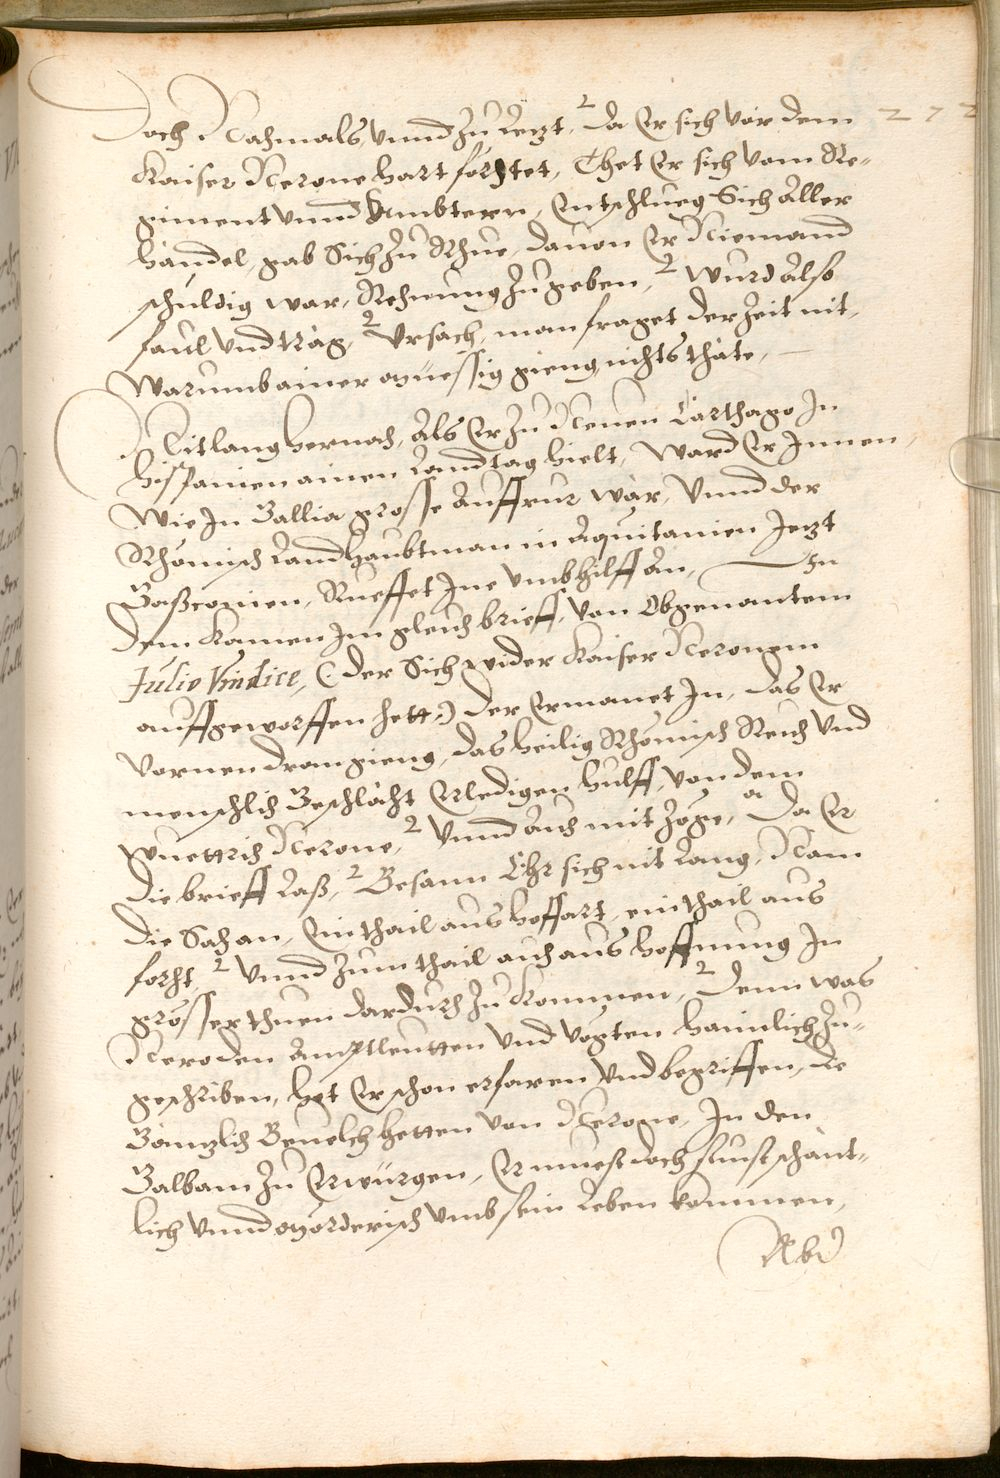 Doch Nachmals vnnd zu letzt, da Er sich vor dem 272
Kaiser Nerone hart forchtet, Thet Er sich vom Re-
giment vnnd Ambtern, Entschlueg Sich Aller
händel, gab Sich zu Rhue, dauon Er Niemand
schuldig war, Rechnung zu geben, wurd also
faul vnd träg, Vrsach, man fraget der Zeit nit,
Warumb ainer müessig gieng, nichts thäte,
Nit lang hernach, Als Er zu Neuen Carthago In
Hispanien ainen Landtag hielt, Ward Er Innen,
Wie In Gallia grosse Auffrur wär, Vnnd der
Rhömisch Landhaubtman in Aquitanien Jetzt
Gaßconien, Rueffet Ine vmb hilff an, In
dem Kamen Im gleich brieff, von Obgenantem
Julio Vindice, (: der Sich wider Kaiser Neronem
auffgeworffen hett :) der Ermanet In, das Er
vornen dran gieng, das heilig Rhömisch Reich vnd
menschlich Geschlächt Erledigen hulff, von dem
Wuettrich Nerone, Vnnd Auch mit Zöge, Da Er
die brieff Laß, Besann Ehr sich nit Lang, Nam
die Sach an, Ein thail aus hoffart, ein thail aus
forcht, Vnnd zum thail auch aus hoffnung In
grösser thuen dardurch zu Kommen, Denn was
Nero den Amptleutten vnd Vögten haimlich zu-
geschriben, het Er schon erfaren vnd begriffen, die
Gänzlich Beuelch hetten von Nerone, In den
Galbam zu Erwürgen, Er muest doch sunst schänt-
lich vnnd mörderisch vmb sein Leben kommen,